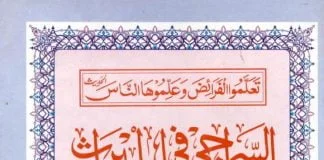 تَعَلَّمُوا الْفَرَائِضَ وَعَلِّمُوْهَا النَّاسَ الحدیث
السراجی فی المیراث